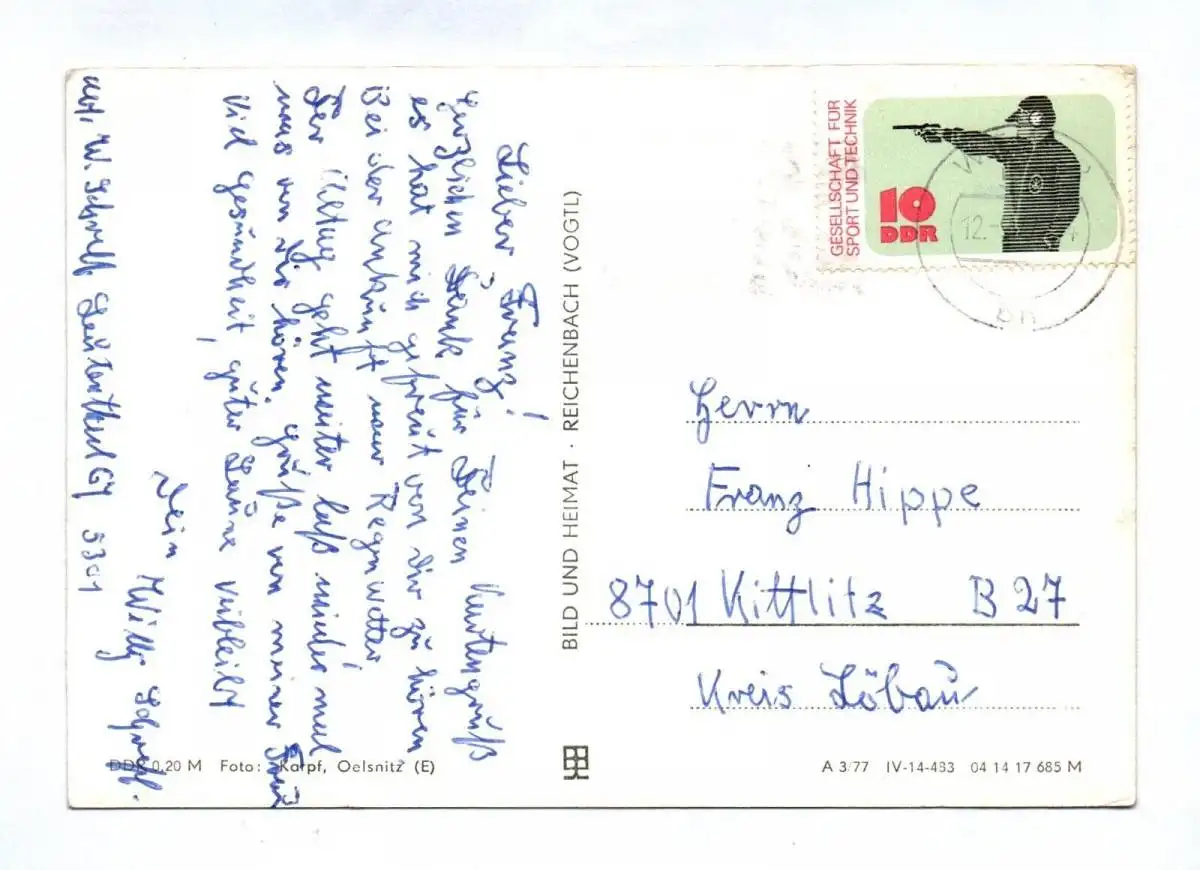 Lieber Franz!
Herzlichen Dank für Deinen Kartengruß
es hat mich gefreut von Dir zu hören
Bei der ankunft war Regenwetter
Der Alltag geht weiter laß wieder mal
was von Dir hören. grüße von meiner Frau
viel gesundheit, guter Laune verbleibt
Dein Willy
abs. W. 5301
BILD UND HEIMAT · REICHENBACH (VOGTL)
GESELLSCHAFT FÜR
SPORT UND TECHNIK
10
DDR
12.-
Herrn
Franz Hippe
8701 Kittlitz B 27
Kreis Löbau
DDR 0,20 M Foto: Karpf, Oelsnitz (E)
A 3/77 IV-14-483 04 14 17 685 M